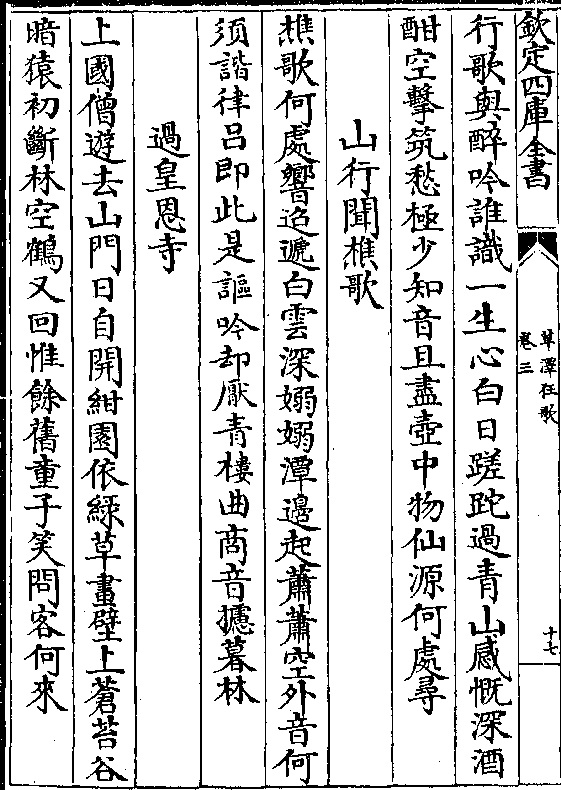 欽定四庫全書
草澤狂歌
卷三
十七
行歌與醉吟誰識一生心白日蹉跎過青山感慨深酒
酣空擊筑愁極少知音且盡壺中物仙源何處尋
山行聞樵歌
樵歌何處響迢遞白雲深嫋嫋潭邊起蕭蕭空外音何
須諧律呂即此是謳吟却厭青樓曲商音攪暮林
過皇恩寺
上國僧遊去山門日自開紺園依綠草畫壁上蒼苔谷
暗猿初斷林空鶴又回惟餘舊童子笑問客何來